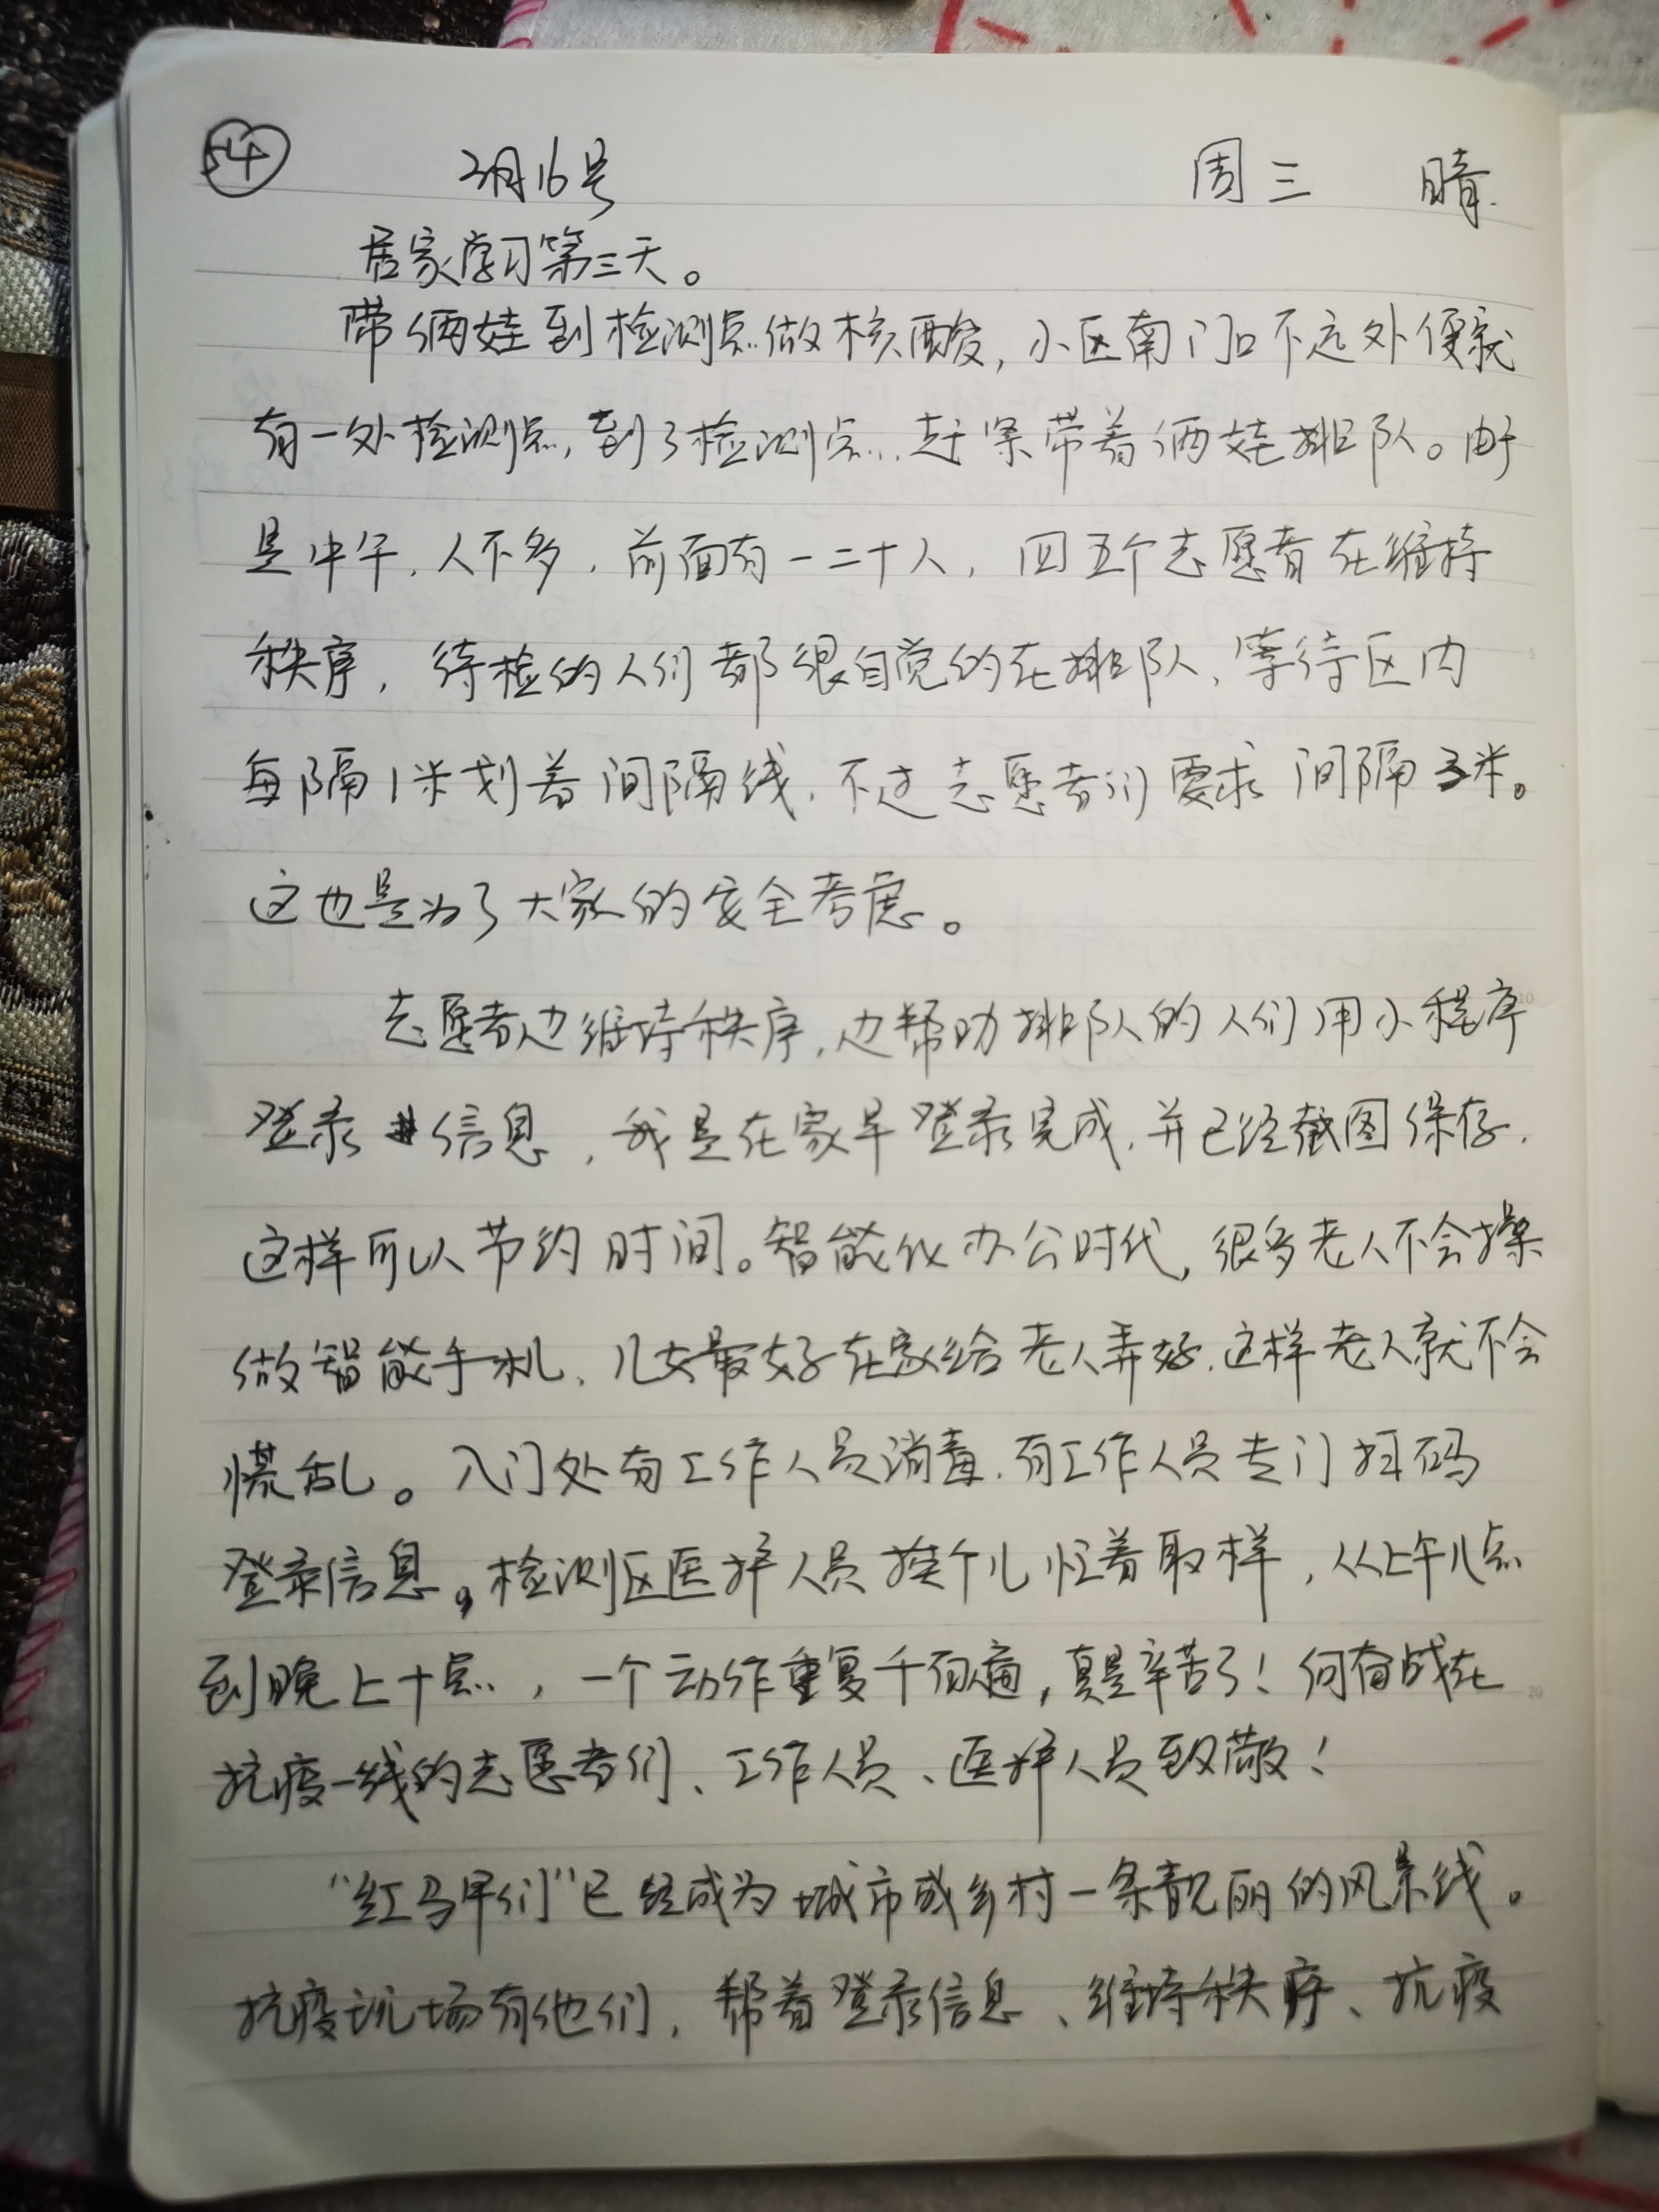 54 3月16号 周三 晴
居家学习第三天。
带俩娃到检测点做核酸,小区南门口不远处便就
有一处检测点,到了检测点,赶紧带着俩娃排队。由于
是中午,人不多,前面有一二十人,四五个志愿者在维持
秩序,待检的人们都很自觉的在排队,等待区内
每隔1米划着间隔线,不过志愿者们要求间隔2米。
这也是为了大家的安全考虑。
志愿者边维持秩序,边帮助排队的人们用小程序
登录信息,我是在家早登录完成,并已经截图保存,
这样可以节约时间。智能化办公时代,很多老人不会操
做智能手机,儿女最好在家给老人弄好,这样老人就不会
慌乱。入门处有工作人员消毒,有工作人员专门扫码
登录信息,检测区医护人员挨个儿忙着取样,从上午八点
到晚上十点,一个动作重复千百遍,真是辛苦了!向奋战在
抗疫一线的志愿者们、工作人员、医护人员致敬!
“红马甲们”已经成为城市或乡村一条靓丽的风景线。
抗疫现场有他们,帮着登录信息、维持秩序、抗疫